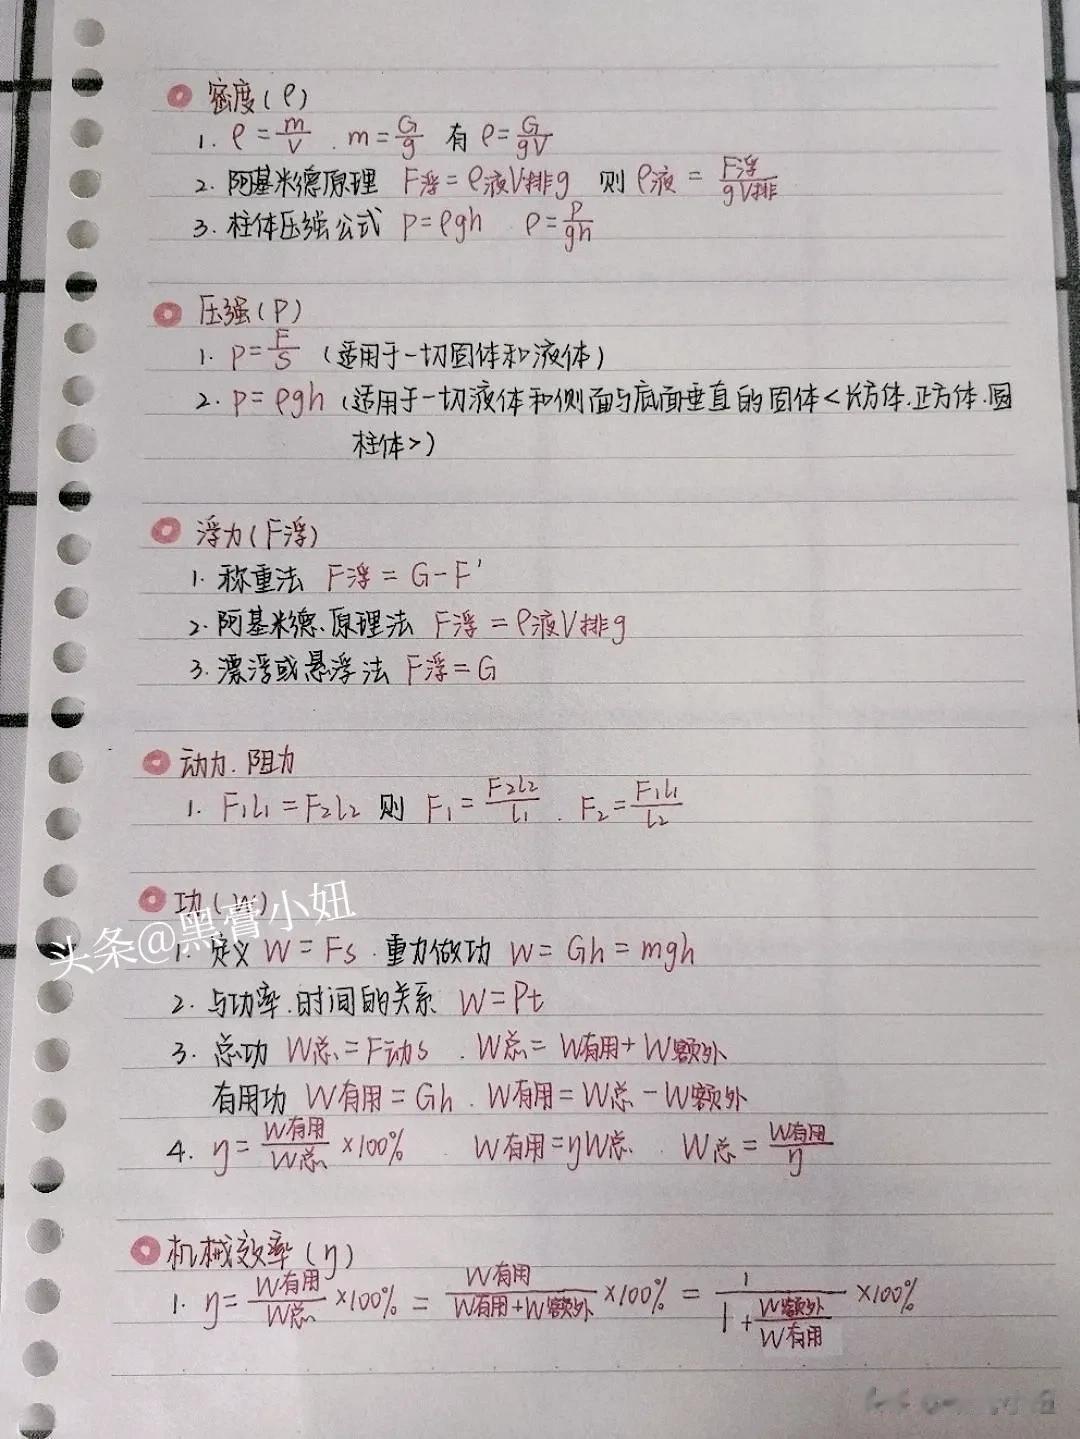 密度(ρ)
1. ρ=m/V . m=G/g 有 ρ=G/gV
2. 阿基米德原理 F浮=ρ液V排g 则 ρ液=F浮/gV排
3. 柱体压强公式 p=ρgh ρ=p/gh
压强(P)
1. p=F/S (适用于一切固体和液体)
2. p=ρgh (适用于一切液体和侧面与底面垂直的固体<长方体.正方体.圆
柱体>)
浮力(F浮)
1. 称重法 F浮=G-F'
2. 阿基米德.原理法 F浮=ρ液V排g
3. 漂浮或悬浮法 F浮=G
动力.阻力
1. F₁l₁=F₂l₂ 则 F₁=F₂l₂/l₁ . F₂=F₁l₁/l₂
功(W)
头条@黑膏小妞
1. 定义 W=Fs .重力做功 W=Gh=mgh
2. 与功率.时间的关系 W=Pt
3. 总功 W总=F动s . W总=W有用+W额外
有用功 W有用=Gh . W有用=W总-W额外
4. η=W有用/W总×100% . W有用=ηW总 . W总=W有用/η
机械效率(η)
1. η=W有用/W总×100%=W有用/(W有用+W额外)×100%=1/(1+W额外/W有用)×100%